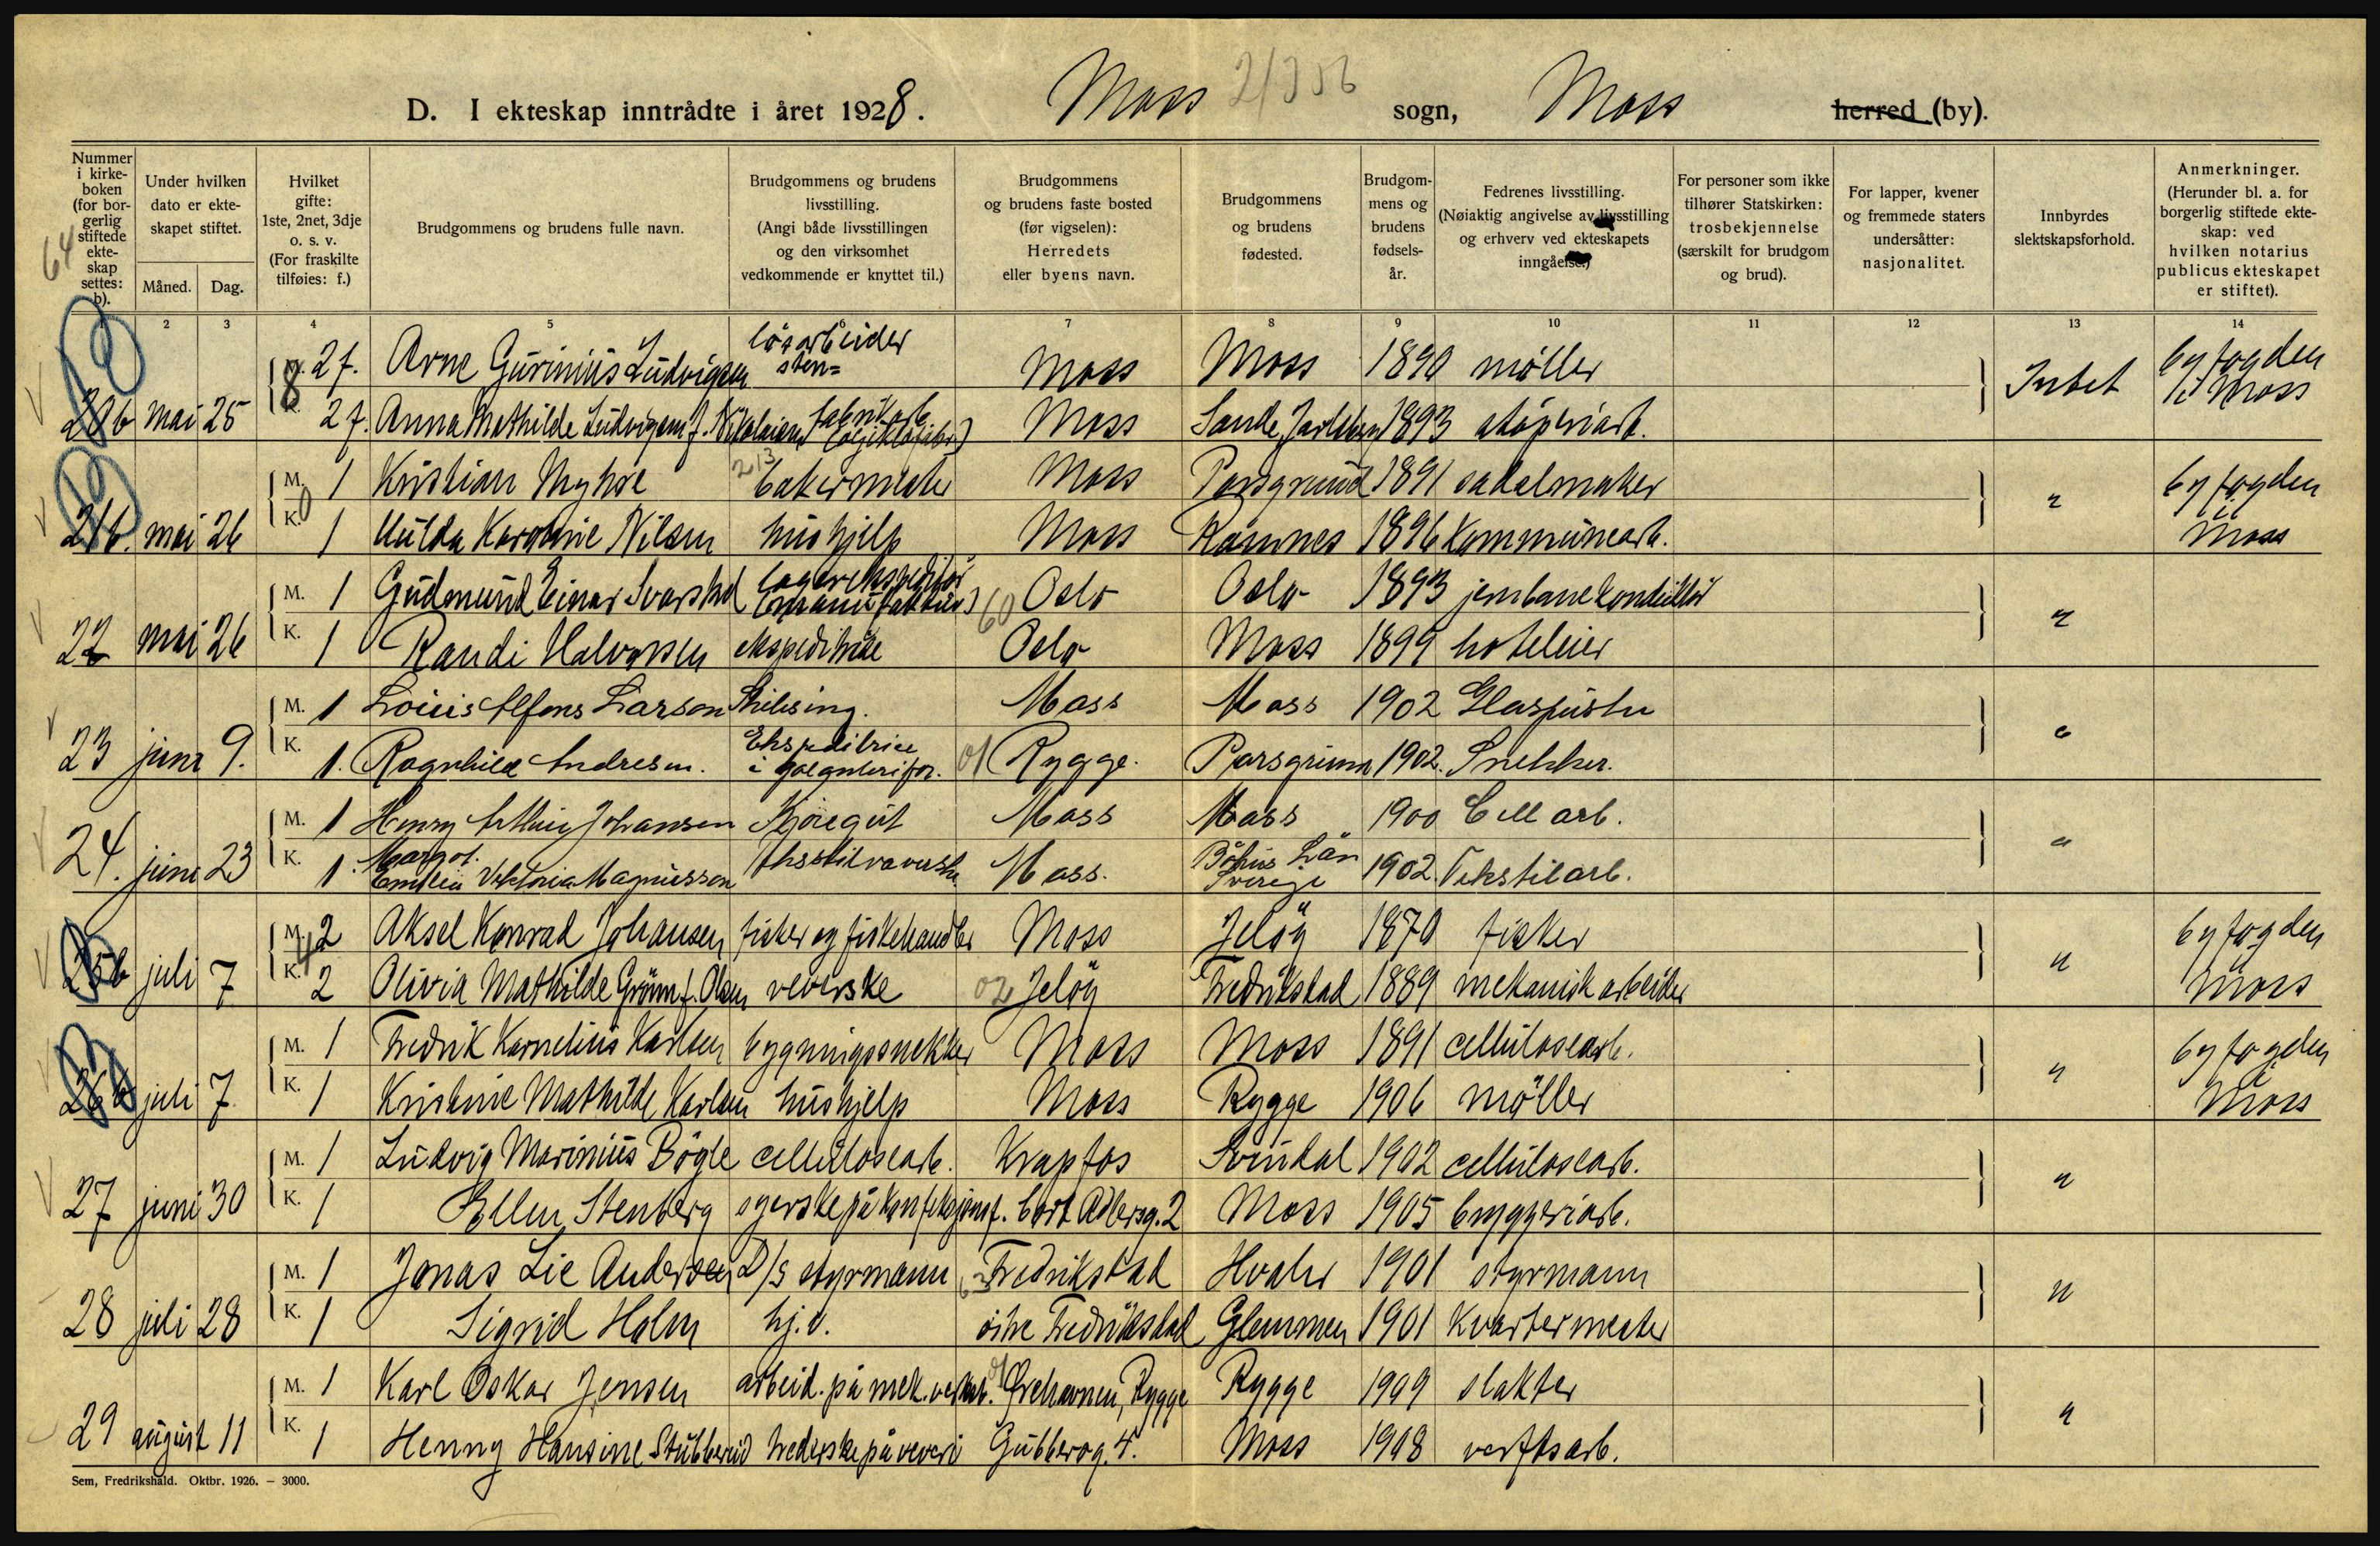 D. I ekteskap inntrådte i året 1928. Moss 21356 sogn, Moss herred (by).
64
Nummer i kirkeboken (for borgerlig stiftede ekteskap settes: b).
Under hvilken dato er ekteskapet stiftet.
Måned. Dag.
Hvilket gifte: 1ste, 2net, 3dje o. s. v. (For fraskilte tilføies: f.)
Brudgommens og brudens fulle navn.
Brudgommens og brudens livsstilling. (Angi både livsstillingen og den virksomhet vedkommende er knyttet til.)
Brudgommens og brudens faste bosted (før vigselen): Herredets eller byens navn.
Brudgommens og brudens fødested.
Brudgommens og brudens fødselsår.
Fedrenes livsstilling. (Nøiaktig angivelse av livsstilling og erhverv ved ekteskapets inngåelse.)
For personer som ikke tilhører Statskirken: trosbekjennelse (særskilt for brudgom og brud).
For lapper, kvener og fremmede staters undersåtter: nasjonalitet.
Innbyrdes slektskapsforhold.
Anmerkninger. (Herunder bl. a. for borgerlig stiftede ekteskap: ved hvilken notarius publicus ekteskapet er stiftet).
1 2 3 4 5 6 7 8 9 10 11 12 13 14
M. 2 f. Arne Gurinius Ludvigsen løsarbeider Moss Moss 1890 møller Intet byfogden i Moss
20b mai 25 K. 2 f. Anna Mathilde Ludvigsen f. Nikolaisen fabrikarb. Moss Sande, Jarlsberg 1893 støperiarb.
M. 1 Kristian Myhre bakermester Moss Porsgrund 1891 sadelmaker " byfogden
21b. mai 26 K. 1 Hulda Karoline Nilsen hushjelp Moss Ramnes 1896 Kommunearb. Moss
M. 1 Gudmund Einar Svarstad lagerekspeditør (manufaktur) 60 Oslo Oslo 1893 jernbanekonduktør "
22 mai 26 K. 1 Randi Halvorsen ekspeditrise Oslo Moss 1899 hoteleier
M. 1 Louis Alfons Larson Moss Moss 1902 Glaspuster "
23 juni 9. K. 1. Ragnhild Andresen. Ekspeditrice i galanterifor. 01 Rygge. Porsgrunn 1902. Snekker.
M. 1 Henry Arthur Johansen Kjøregut Moss Moss 1900 Cell arb. "
24. juni 23 K. 1. Margot Emilia Viktoria Magnusson Moss. Båhus Län Sverige 1902. Tekstilarb.
M. 2 Aksel Konrad Johansen fisker og fiskehandler Moss Jeløy 1870 fisker " byfogden
25b juli 7 K. 2 Olivia Mathilde Grönn f. Olsen veverske 02 Jeløy Fredrikstad 1889 mekanisk arbeider Moss
M. 1 Fredrik Kornelius Karlsen bygningssnekker Moss Moss 1891 cellulosearb. " byfogden
26b juli 7 K. 1 Kristine Mathilde Karlsen hushjelp Moss Rygge 1906 møller Moss
M. 1 Ludvig Marinius Bögle cellulosearb. Krapfos Svindal 1902 cellulosearb. "
27 juni 30 K. 1 Ellen Stenberg syerske på konfeksjonsf. Cort Adlersg. 2 Moss 1905 bryggeriarb.
M. 1 Jonas Lie Andersen D/s styrmann Fredrikstad Hvaler 1901 styrmann "
28 juli 28 K. 1 Sigrid Holm hj.v. østre Fredrikstad Glemmen 1901 Kvartermester
M. 1 Karl Oskar Jensen arbeid. på mek. verkst. 01 Ørehavnen, Rygge Rygge 1909 slakter "
29 august 11 K. 1 Henny Hansine Stubberud trederske på veveri Gubberog. 4. Moss 1908 verftsarb.
Sem, Fredrikshald. Oktbr. 1926. — 3000.